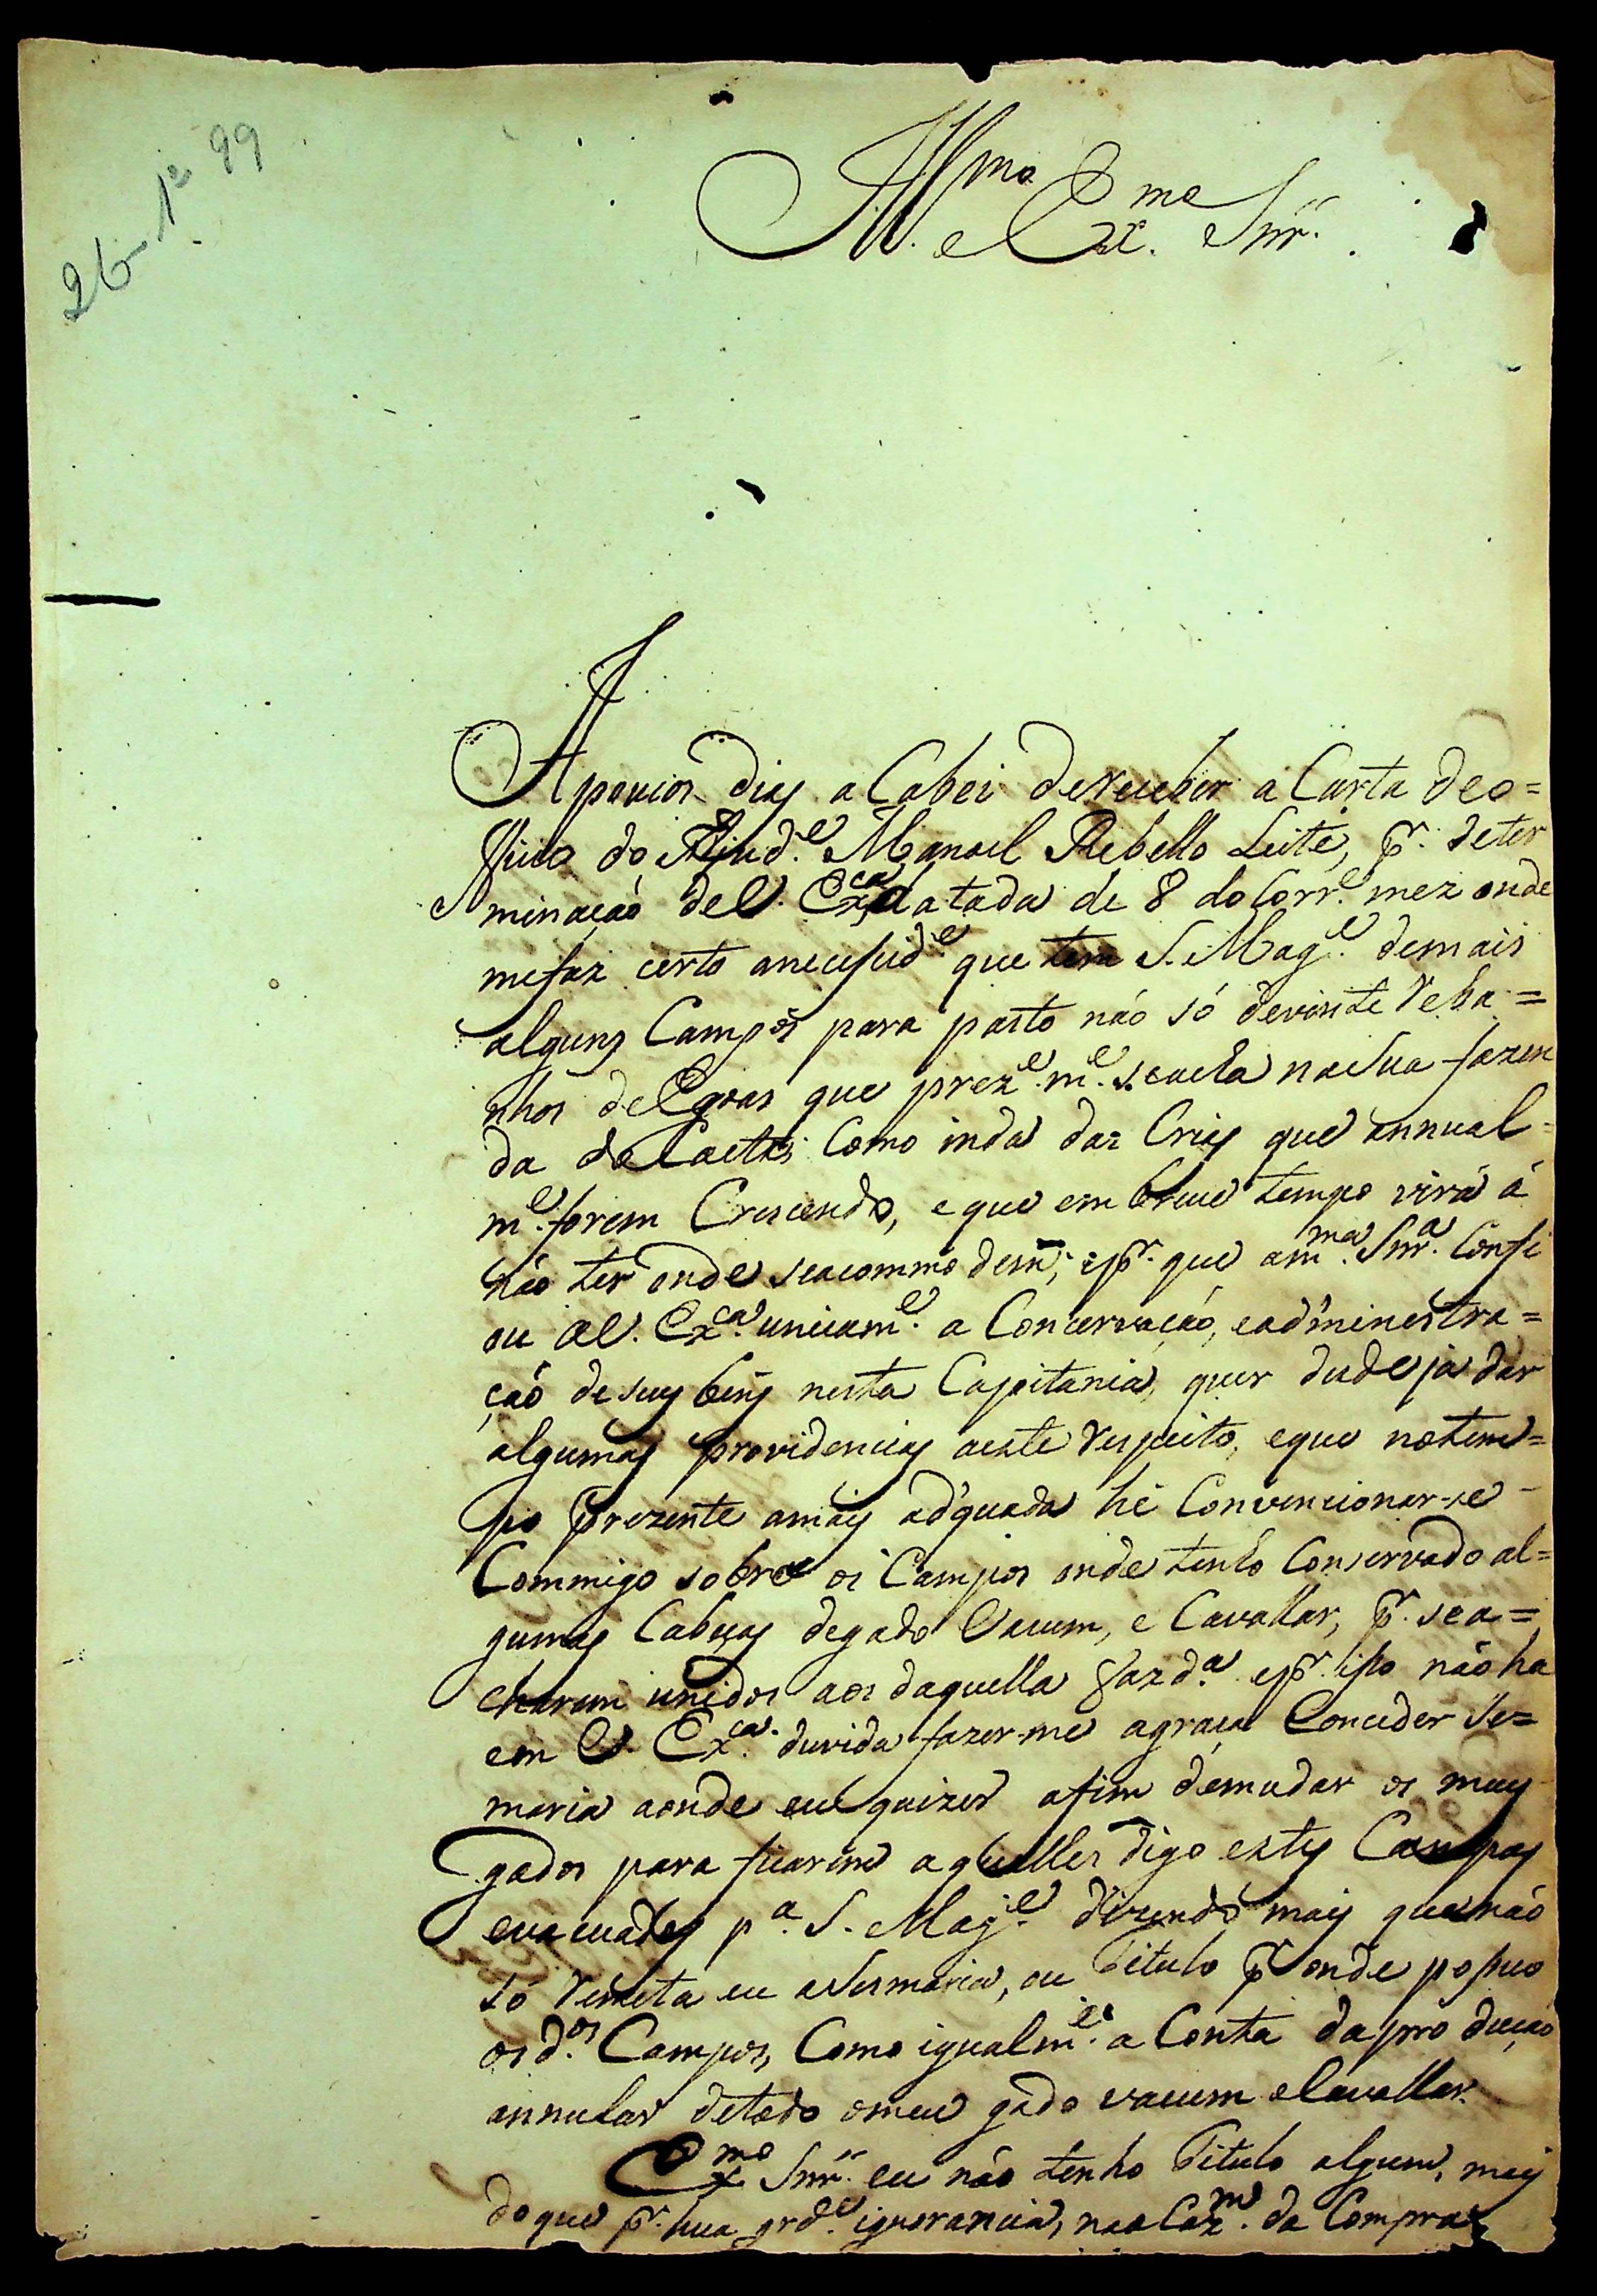 26-1º 99
Illmo e Exmo Snr.
A poucos dias a Cabei de Receber a Carta de o=
fficio do Ajude. Manoel Rebello Leite, pr. deter
minação de V. Exca. datada de 8 do Corre. mez onde
me faz certo a necesside. que tem S. Mage. de mais
alguns Campos para pasto não só de vinte Reba=
nhos de Egoas que preze.me. se acha na Sua fazen
da de Caetes Como inda das Crias que annual=
me. forem Crescendo, e que em breve tempo virá á
não ter onde se acommodem; e pr. que a mma. Snra. Confi
ou a V. Exca. unicame. a Concervação, e ad'minestra=
ção de seus bens nesta Capitania, quer desde ja dar
algumas providencias a este Respeito, e que no tem=
po prezente a mais ad'quada hé Convencionar-se
Commigo sobre os Campos onde tenho Conservado al=
gumas Cabeças de gado Vacum, e Cavallar, pr. se a=
charem unidos aos daquella Fazda. e pr. isso não ha
em V. Exca. duvida fazer-me a graça Conceder Ses=
maria aonde eu quizer a fim de mudar os meus
gados para ficarem aquelles digo estes Campos
evacuados pa. S. Mage. dizendo mais que não
só Remeta eu a Sesmaria, ou Titulo pr. onde possuo
os dos. Campos, Como igualme. a Conta da produção
annular de todo o meu gado vacum e Cavallar.
Exmo Snr. eu não tenho Titulo algum, mais
do que pr. hua grde. ignorancia, na oCazm. da Compra